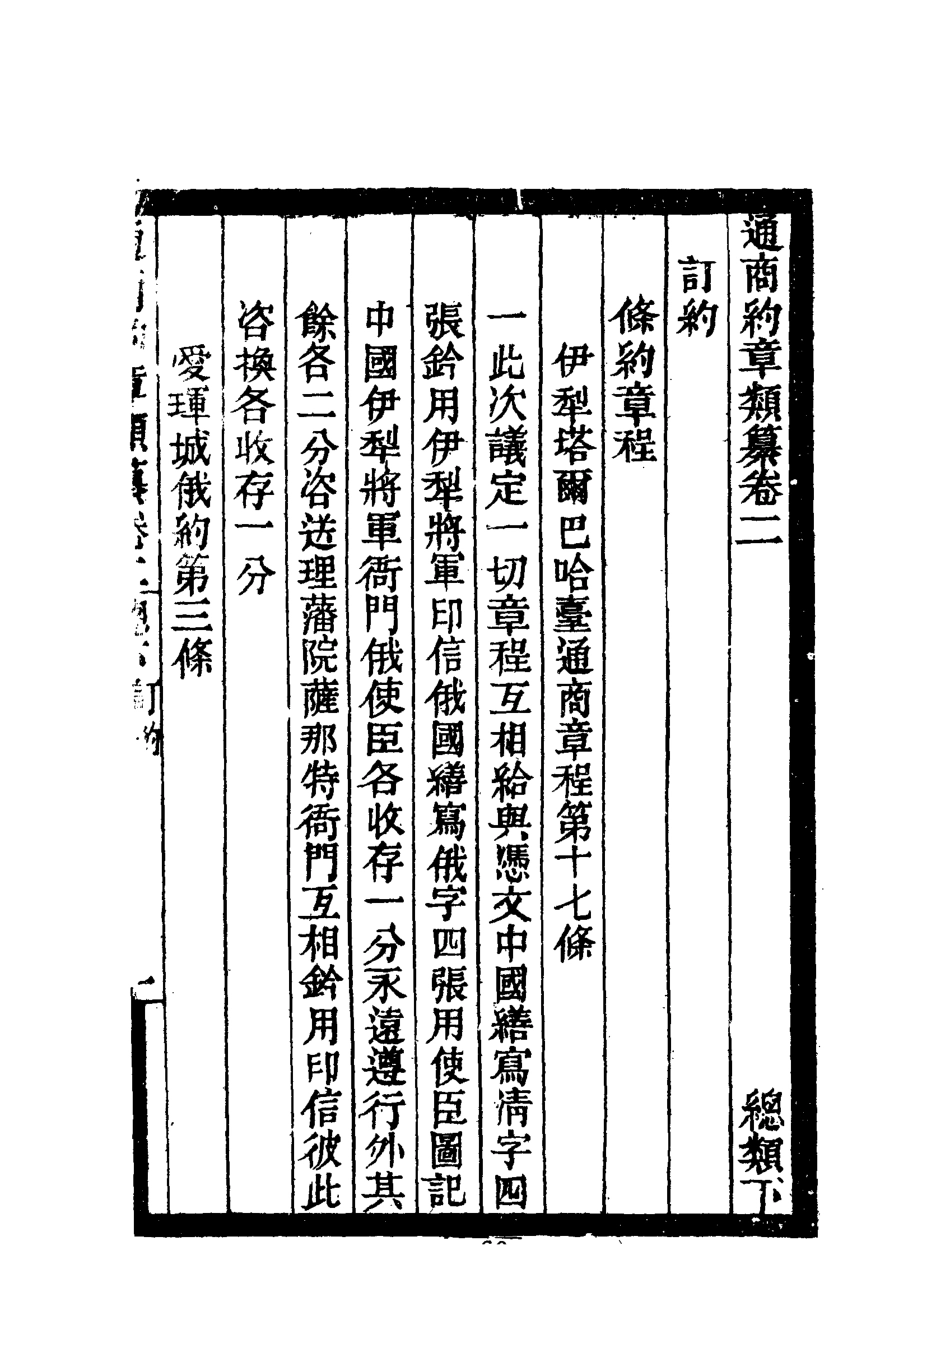 通商約章類纂卷二 總類下
訂約
條約章程
伊犁塔爾巴哈臺通商章程第十七條
一此次議定一切章程互相給與憑文中國繕寫清字四
張鈐用伊犁將軍印信俄國繕寫俄字四張用使臣圖記
中國伊犁將軍衙門俄使臣各收存一分永遠遵行外其
餘各二分咨送理藩院薩那特衙門互相鈐用印信彼此
咨換各收存一分
愛琿城俄約第三條
章類纂卷二 訂約